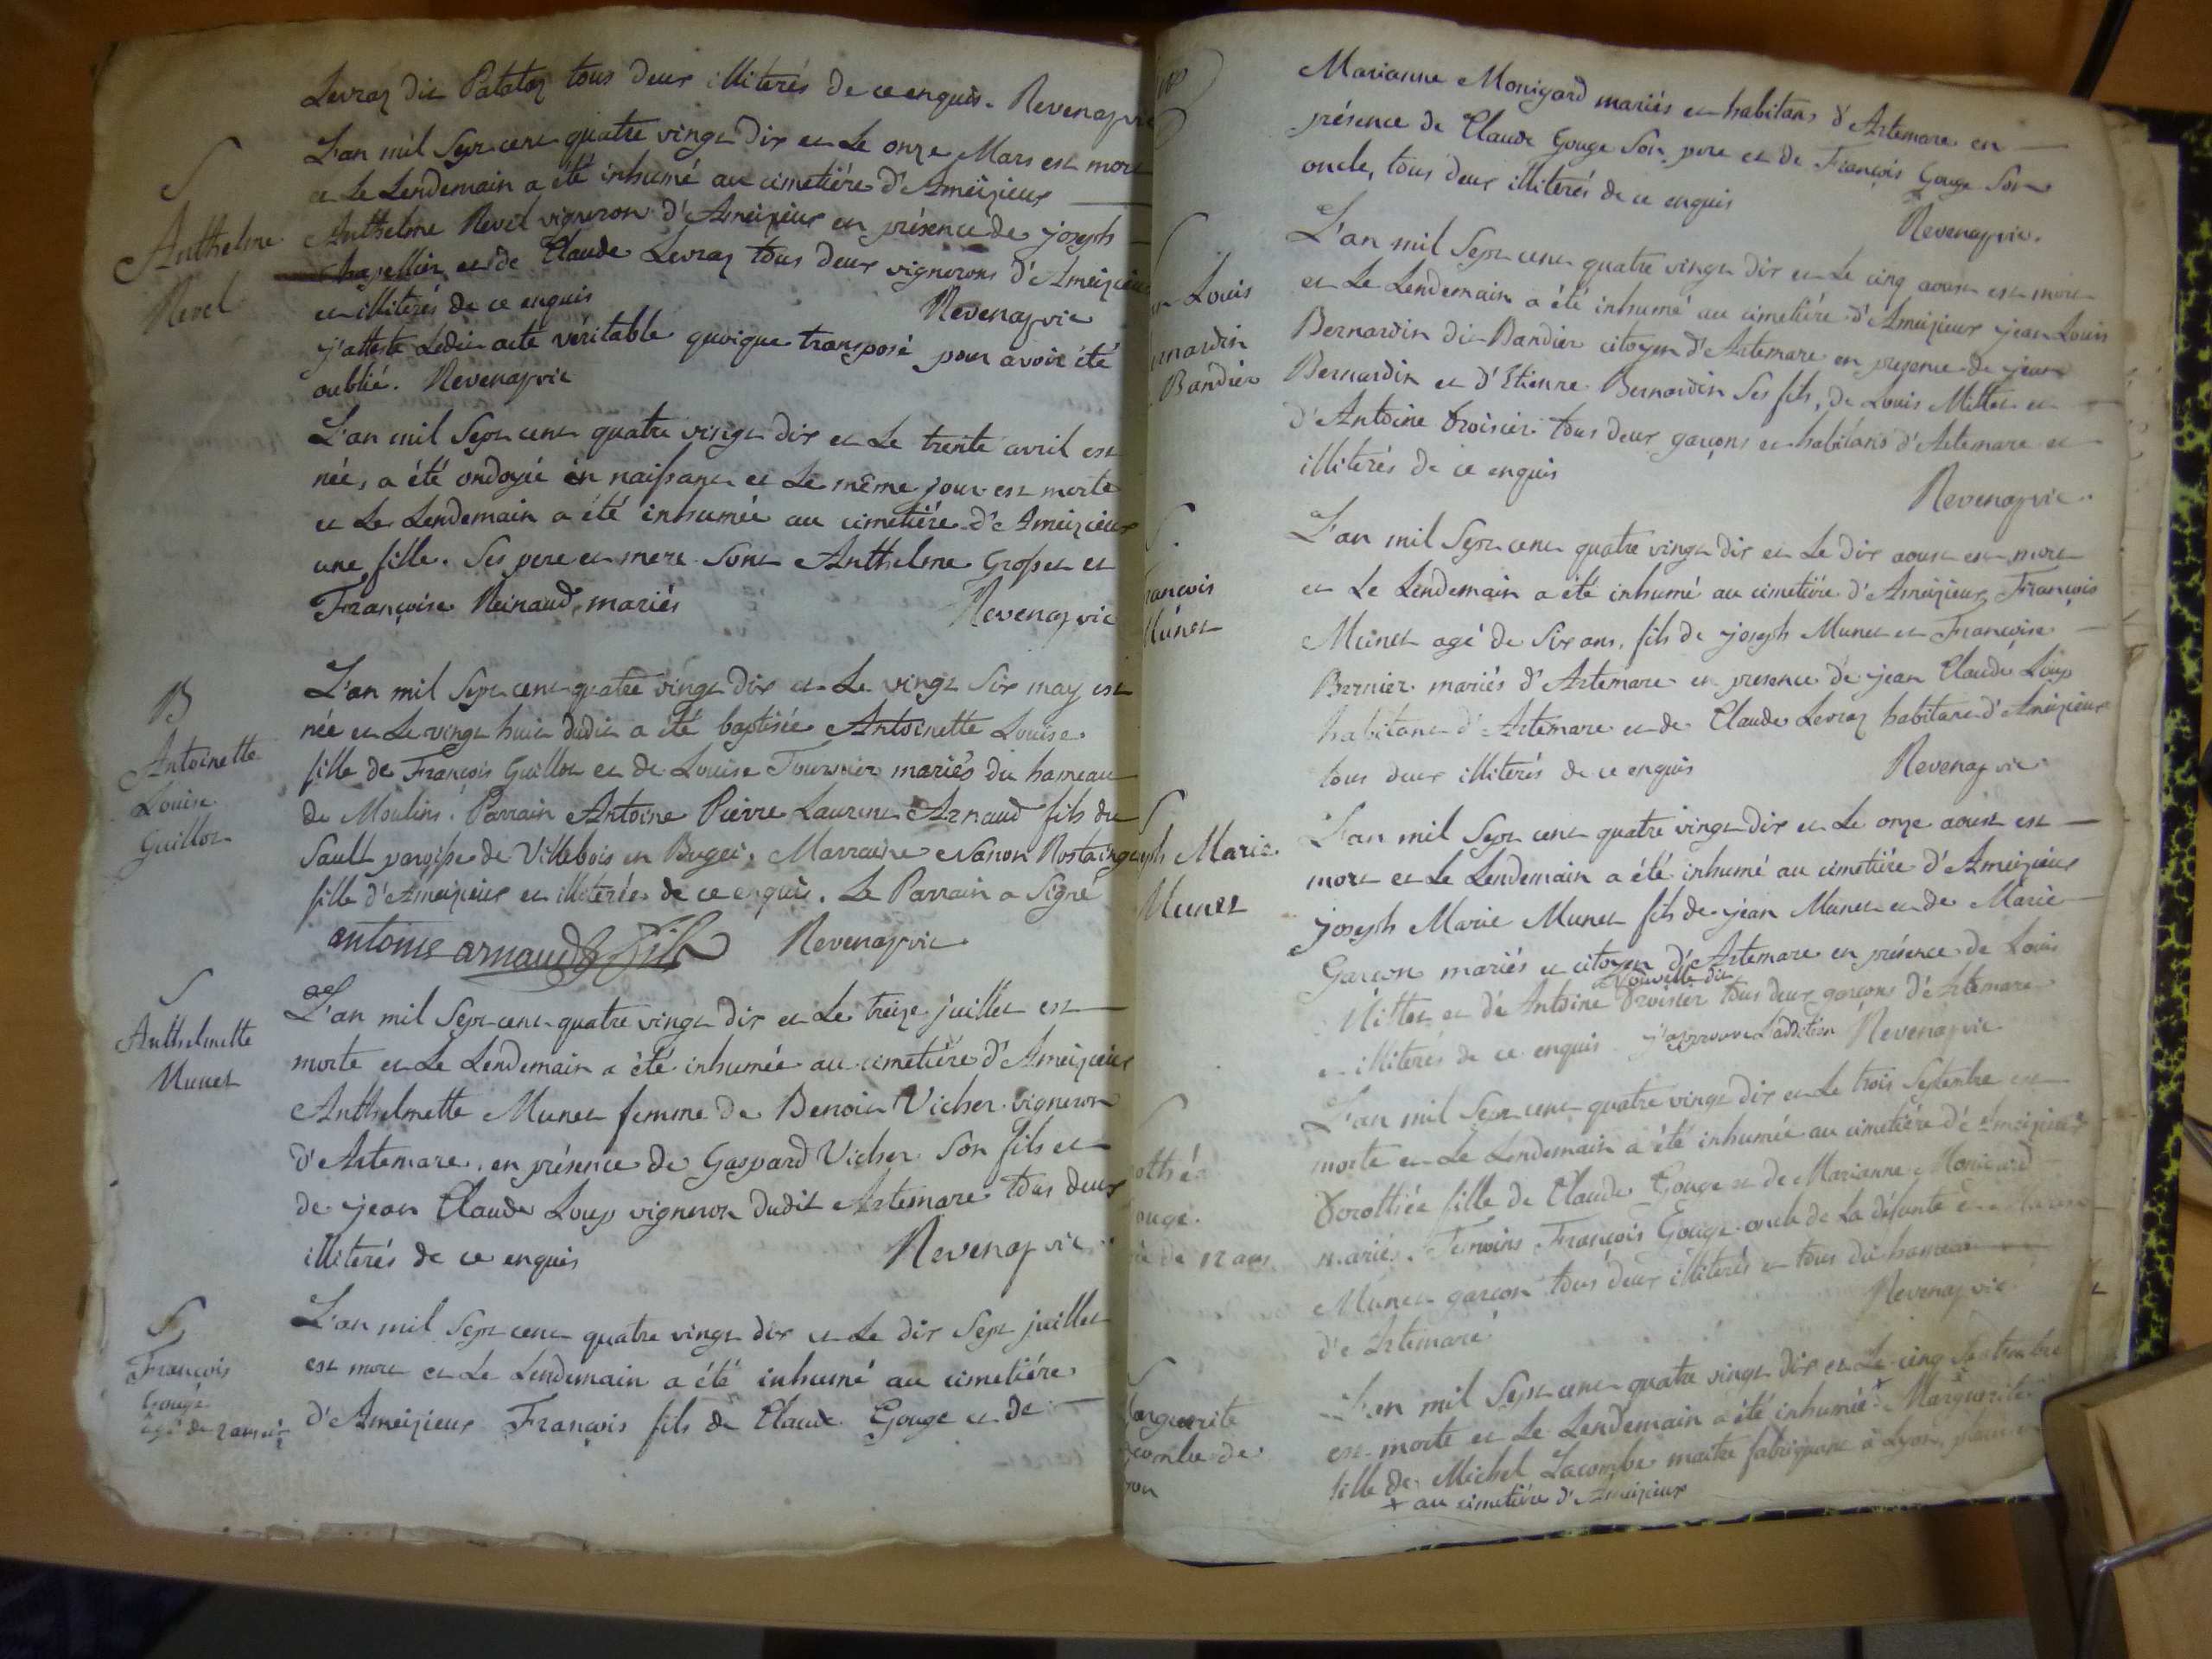 Levraz dit Patataz tous deux illiterés de ce enquis. Revenaz vic
S
Anthelme
Revel
L'an mil Sept cent quatre vingt dix et Le onze Mars est mort
et Le Lendemain a été inhumé au cimetiére d'Ameizieux
Anthelme Revel vigneron d'Ameizieux en présence de joseph
chapellier et de Claude Levraz tous deux vignerons d'Ameizieux
et illiterés de ce enquis Revenaz vic
j'atteste Ledit acte véritable quoique transposé pour avoir été
oublié. Revenaz vic
L'an mil Sept cent quatre vingt dix et Le trente avril est
née, a été ondoyée en naissant et Le même jour est morte
et Le Lendemain a été inhumée au cimetiére d'Ameizieux
une fille. Ses pere et mere Sont Anthelme Grosset et
Françoise Reinaud mariés Revenaz vic
B
Antoinette
Louise
Guillot
L'an mil Sept cent quatre vingt dix et Le vingt Six may est
née et Le vingt huit dudit a été baptisée Antoinette Louise
fille de François Guillot et de Louise Tournier mariés du hameau
de Moulins. Parrain Antoine Pierre Laurent Arnaud fils du
Sault paroisse de Villebois en Bugei, Marraine Nanon Rostaing
fille d'Ameizieux et illiterée de ce enquis. Le Parrain a Signé
antoine arnaud fils Revenaz vic
S
Anthelmette
Munet
L'an mil Sept cent quatre vingt dix et Le treize juillet est
morte et Le Lendemain a été inhumée au cimetiére d'Ameizieux
Anthelmette Munet femme de Benoit Vicher vigneron
d'Artemare, en présence de Gaspard Vicher Son fils et
de jean Claude Loup vigneron dudit Artemare tous deux
illiterés de ce enquis Revenaz vic
S
François
Gouge
agé de 2 ans
L'an mil Sept cent quatre vingt dix et Le dix Sept juillet
est mort et Le Lendemain a été inhumé au cimetiére
d'Ameizieux François fils de Claude Gouge et de
Marianne Monigard mariés et habitans d'Artemare en
présence de Claude Gouge Son pere et de François Gouge Son
oncle, tous deux illiterés de ce enquis
Revenaz vic.
Louis
rnardin
Bandier
L'an mil Sept cent quatre vingt dix et Le cinq aoust est mort
et Le Lendemain a été inhumé au cimetiére d'Ameizieux jean Louis
Bernardin dit Bandier citoyen d'Artemare en presence de jean
Bernardin et d'Etienne Bernardin Ses fils, de Louis Mittet et
d'Antoine Droisier tous deux garçons et habitans d'Artemare et
illiterés de ce enquis
Revenaz vic.
S
rançois
Munet
L'an mil Sept cent quatre vingt dix et Le dix aoust est mort
et Le Lendemain a été inhumé au cimetiére d'Ameizieux François
Munet agé de Six ans, fils de joseph Munet et Françoise
Bernier mariés d'Artemare en presence de jean Claude Loup
habitant d'Artemare et de Claude Levraz habitant d'Ameizieux
tous deux illiterés de ce enquis Revenaz vic
S
ph Marie
Munet
L'an mil Sept cent quatre vingt dix et Le onze aoust est
mort et Le Lendemain a été inhumé au cimetiére d'Ameizieux
joseph Marie Munet fils de jean Munet et de Marie
Garcon mariés et citoyen d'Artemare en présence de Louis
Mittet et de Antoine Droisier tous deux garçons d'Artemare
et illiterés de ce enquis j'approuve L'addition Revenaz vic
othée
ouge
de 12 ans
L'an mil Sept cent quatre vingt dix et Le trois Septembre est
morte et Le Lendemain a été inhumée au cimetiére d'Ameizieux
Dorothée fille de Claude Gouge et de Marianne Monigard
mariés. Temoins François Gouge oncle de La défunte et
Munet garçon tous deux illiterés et tous du hameau
d'Artemare Revenaz vic
S
arguerite
acombe de
yon
L'an mil Sept cent quatre vingt dix et Le cinq Septembre
est morte et Le Lendemain a été inhumée + Marguerite
fille de Michel Lacombe maitre fabriquant à Lyon,
+ au cimetiére d'Ameizieux